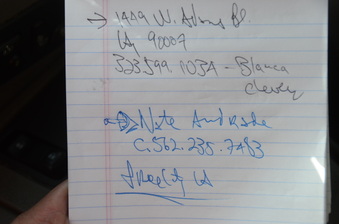 → 1449 W. Adams Bl.
LA 90007
323.599.1034 - Blanca
Nate Andrade
C. 562.235.7483